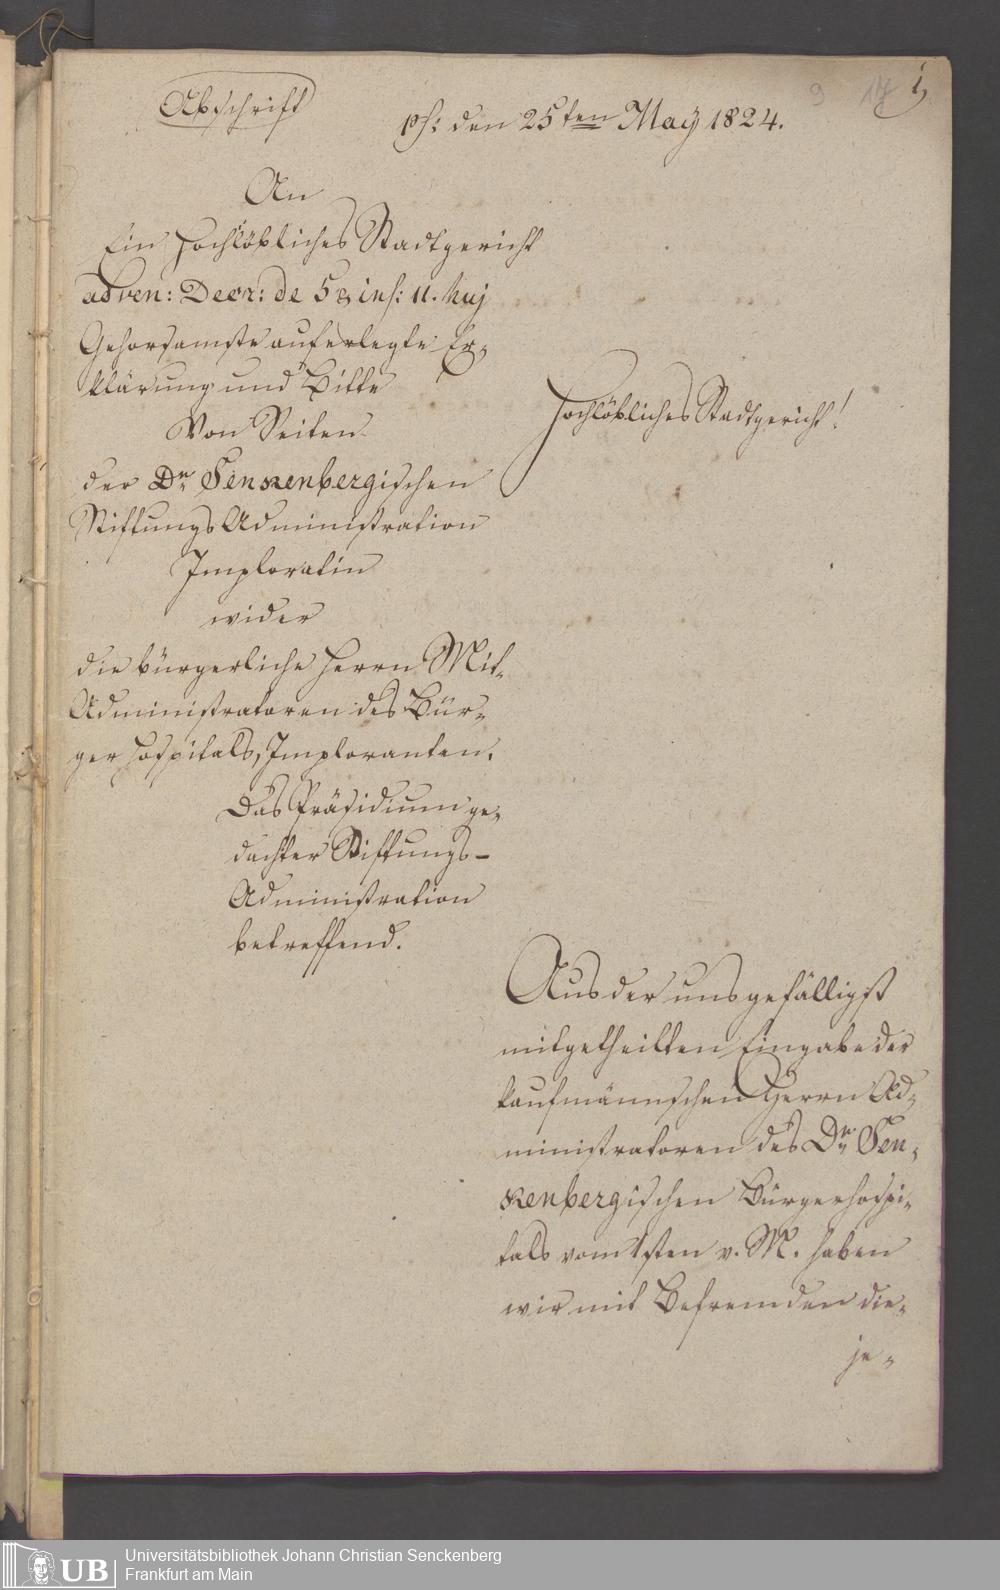 Abschrift
ps: den 25ten May 1824.
9 17 5
An
Ein Hochlöbliches Stadtgericht
ad ven: Decr: de 5 & ins: 11. huj
Gehorsamste auferlegte Er-
klärung und Bitte
Von Seiten
der Dr Senkenbergischen
Stiftungs Administration
Imploratin
wider
die bürgerliche Herrn Mit-
Administratoren des Bür-
ger Hospitals, Imploranten.
Das Präsidium ge-
dachter Stiftungs-
Administration
betreffend.
Hochlöbliches Stadtgericht!
Aus der uns gefälligst
mitgetheilten Eingabe der
kaufmännschen Herrn Ad-
ministratoren des Dr Sen-
kenbergischen Bürgerhospi-
tals vom 1sten v. M. haben
wir mit Befremden die-
je-
UB
Universitätsbibliothek Johann Christian Senckenberg
Frankfurt am Main